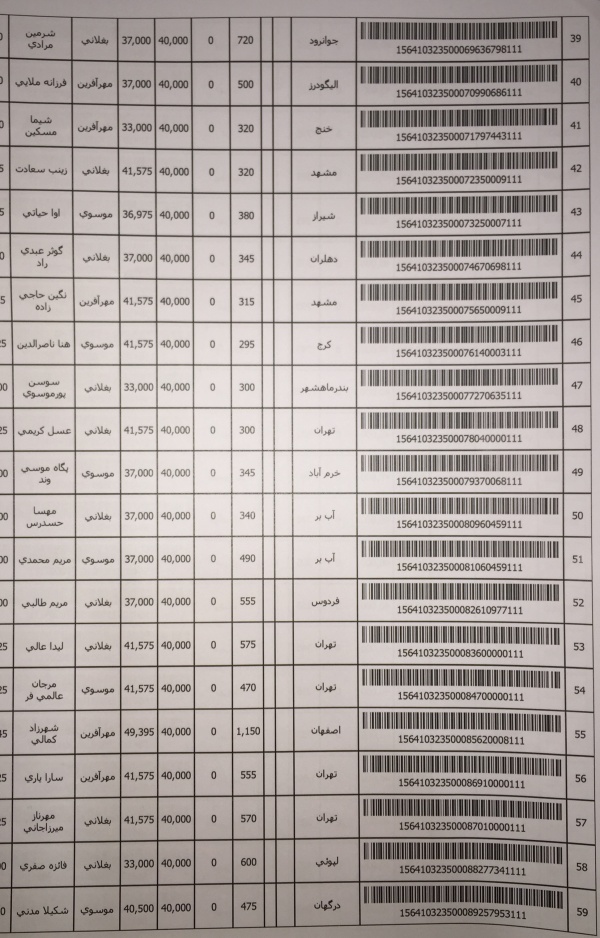 39 156410323500069636798111 جوانرود 720 0 40,000 37,000 بغلاني شرمين مرادي
40 156410323500070990686111 اليگودرز 500 0 40,000 37,000 مهرآفرين فرزانه ملايي
41 156410323500071797443111 خنج 320 0 40,000 33,000 مهرآفرين شيما مسكين
42 156410323500072350009111 مشهد 320 0 40,000 41,575 بغلاني زينب سعادت
43 156410323500073250007111 شيراز 380 0 40,000 36,975 موسوي آوا حياتي
44 156410323500074670698111 دهلران 345 0 40,000 37,000 بغلاني گوثر عبدي راد
45 156410323500075650009111 مشهد 315 0 40,000 41,575 مهرآفرين نگين حاجي زاده
46 156410323500076140003111 كرج 295 0 40,000 41,575 موسوي هنا ناصرالدين
47 156410323500077270635111 بندرماهشهر 300 0 40,000 33,000 بغلاني سوسن پورموسوي
48 156410323500078040000111 تهران 300 0 40,000 41,575 بغلاني عسل كريمي
49 156410323500079370068111 خرم آباد 345 0 40,000 37,000 موسوي پگاه موسي وند
50 156410323500080960459111 آب بر 340 0 40,000 37,000 بغلاني مهسا حسدرس
51 156410323500081060459111 آب بر 490 0 40,000 37,000 موسوي مريم محمدي
52 156410323500082610977111 فردوس 555 0 40,000 37,000 بغلاني مريم طالبي
53 156410323500083600000111 تهران 575 0 40,000 41,575 بغلاني ليدا عالي
54 156410323500084700000111 تهران 470 0 40,000 41,575 موسوي مرجان عالمي فر
55 156410323500085620008111 اصفهان 1,150 0 40,000 49,395 مهرآفرين شهرزاد كمالي
56 156410323500086910000111 تهران 555 0 40,000 41,575 مهرآفرين سارا ياري
57 156410323500087010000111 تهران 570 0 40,000 41,575 بغلاني مهرناز ميرزاجاني
58 156410323500088277341111 ليوئي 600 0 40,000 33,000 بغلاني فائزه صفري
59 156410323500089257953111 درگهان 475 0 40,000 40,500 موسوي شكيلا مدني